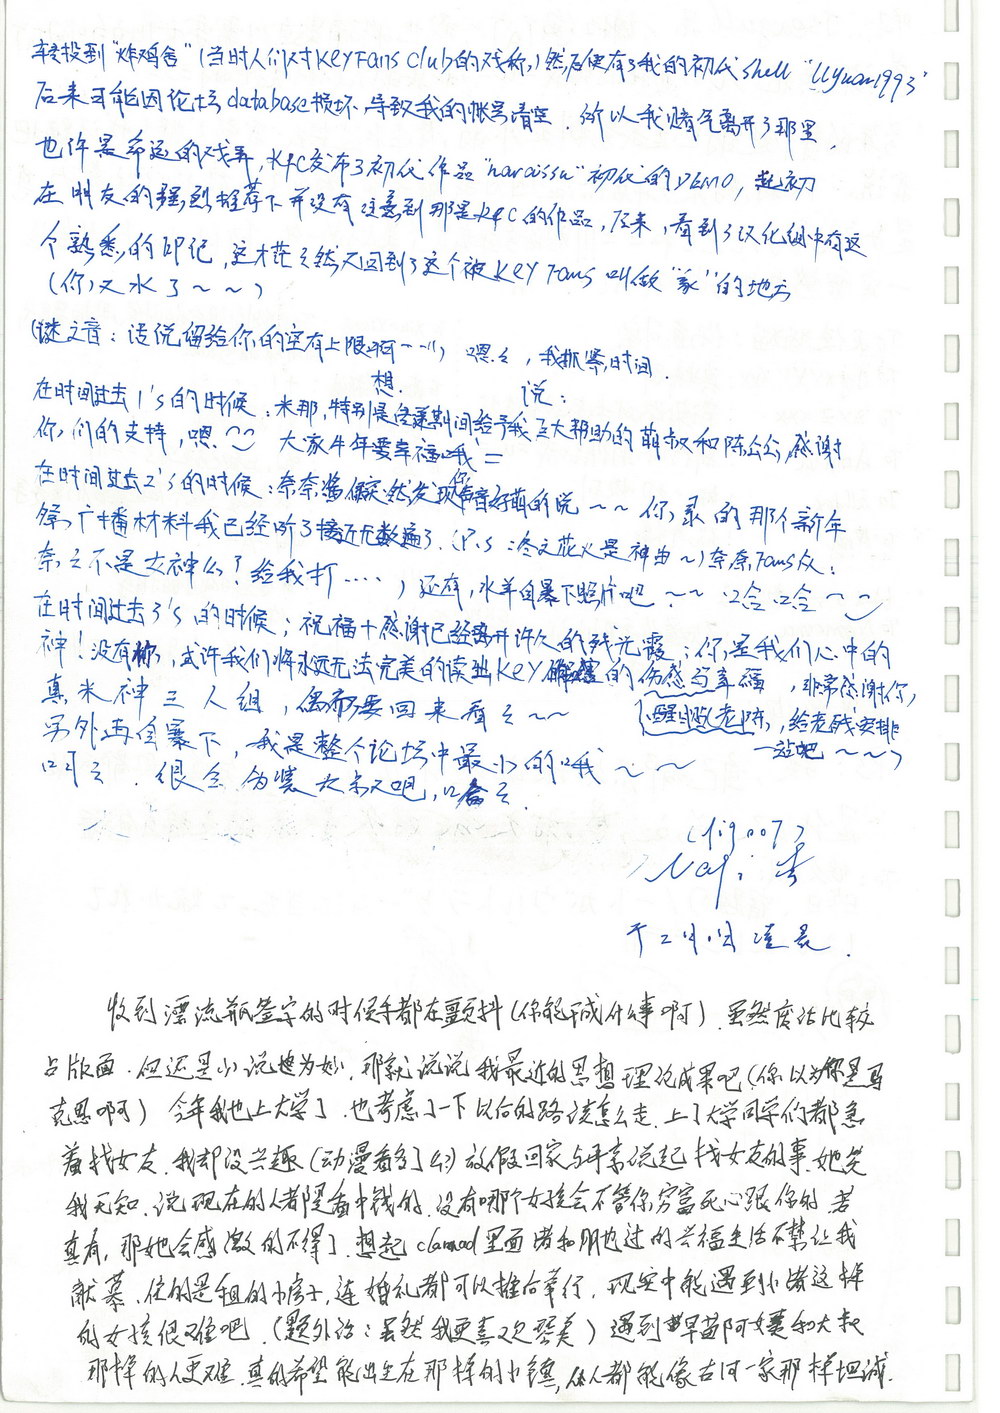 转投到“炸鸡舍”(当时人们对KeyFans club的戏称,)然后便有了我的初代shell “LLyuan1993”
后来可能因论坛database损坏,导致我的帐号清空.所以我赌气离开了那里.
也许是命运的戏弄,KFC发布了初代作品“narcissu”初化的DEMO,起初
在朋友的强烈推荐下并没有注意到那是KFC的作品,后来,看到了汉化组中有这
个熟悉的印记,这才茫然又回到了这个被KEY Fans叫做“家”的地方
(你又水了~~)
(谜之音:话说留给你的空有上限啊……)嗯,我抓紧时间.
在时间过去1's的时候:想 米那,特别是给予我至大帮助的萌叔和陈公公,感谢 说:
你们的支持,嗯 大家牛年要幸福哦=
在时间过去2's的时候:奈奈酱偶突然发现你声音好萌的说~~你录的那个新年
祭广播材料我已经听了接近无数遍了.(P.S:冬之花火是神曲~)奈奈Fans众:
奈之不是女神么?给我打……)还有,水羊自暴下照片吧~~哈哈~~
在时间过去3's的时候;祝福+感谢已经离开许久的残光霞;你是我们心中的
神!没有你,或许我们将永远无法完美的读出KEY 的伤感与幸福,非常感谢你,
真米神三人组,偶而要回来看之~~ 醒目啦老陈,给老残安排
另外再自暴下,我是整个论坛中最小的哦~~ 一站吧~~)
很会伪装大叔又吧,
于2月1日凌晨.
收到漂流瓶签字的时候手都在颤抖(你能干成什么事啊).虽然废话比较
占版面.但还是小说也为妙,那就说说我最近的思想理论成果吧(你以为你是马
克思啊)今年我也上大学了.也考虑了一下以后的路该怎么走.上了大学同学们都急
着找女友.我却没兴趣(动漫看多了么?)放假回家与母亲说起找女友的事.她笑
我无知.说现在的人都是看中钱的.没有哪个女孩会不管你穷富死心跟你的.若
真有,那她会感激的不得了.想起clannad里面渚和朋也过的幸福生活不禁让我
羡慕.住的是租的小房子,连婚礼都可以推后举行.现实中能遇到小渚这样
的女孩很难吧.(题外话:虽然我更喜欢琴美)遇到早苗阿姨和大叔
那样的人更难.真的希望能出生在那样的小镇,人人都能像古河一家那样坦诚.